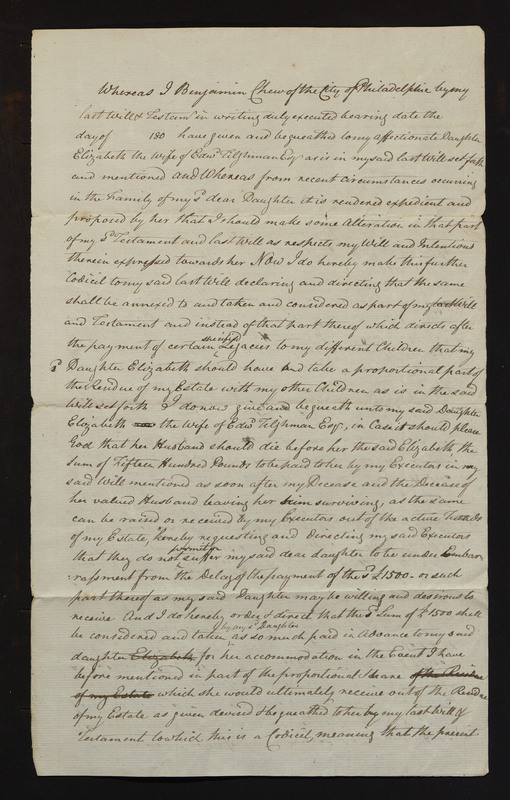 Whereas I Benjamin Chew of the City of Philadelphia by my
last Will & Testamt in writing duly executed bearing date the
day of 180 have given and bequeathed to my affectionate Daughter
Elizabeth the Wife of Edwd Tilghman Esqr as is in my said last Will set forth
and mentioned and Whereas from recent circumstances occurring
in the Family of my sd dear Daughter it is rendered expedient and
proposed by her that I should make some Alteration in that part
of my sd Testament and last Will as respects my Will and Intentions
therein expressed towards her Now I do hereby make this further
Codicil to my said last Will declaring and directing that the same
shall be annexed to and taken and considered as part of my last Will
and Testament and instead of that part thereof which directs after
the payment of certain specified Legacies to my different Children that my
sd Daughter Elizabeth should have and take a proportional part of
the Residue of my Estate with my other Children as is in the said
Will set forth I do now give and bequeath unto my said Daughter
Elizabeth the Wife of Edwd Tilghman Esqr, in Case it should please
God that her Husband should die before her the said Elizabeth the
Sum of Fifteen Hundred Pounds to be paid to her by my Executors in my
said Will mentioned as soon after my Decease and the Decease of
her valued Husband leaving her him surviving, as the same
can be raised or received by my Executors out of the active Funds
of my Estate, hereby requesting and directing my said Executors
that they do not permit or suffer my said dear daughter to be under Embar-
:rassment from the Delay of the payment of the sd £1500- or such
part thereof as my said Daughter may be willing and desirous to
receive And I do hereby order & direct that the sd Sum of £1500 shall
be considered and taken by my sd Daughter as so much paid in Advance to my said
daughter Elizabeth for her accommodation in the Event I have
before mentioned in part of the proportional Share of the Residue
of my Estate which she would ultimately receive out of the Residue
of my Estate as given devised & bequeathed to her by my last Will &
Testament to which this is a Codicil, meaning that the present